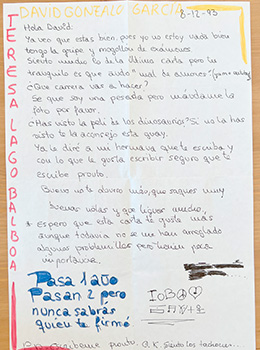 DAVID GONZALO GARCÍA
8-12-93
TERESA LAGO BALBOA
Hola David.
Ya veo que estas bien, pues yo no estoy nada bien
tengo la gripe y mogollón de exámenes.
Siento mucho lo de la última carta pero tu
tranquilo es que ando "mal de amores"
¿Que carrera vas a hacer?
Se que soy una pesada pero mándame la
foto por favor.
¿Has visto la peli de los dinosaurios? Si no la has
visto te la aconsejo esta guay.
Ya le diré a mi hermana que te escriba y
con lo que le gusta escribir seguro que te
escribe pronto.
Bueno nota ahorro más, que saques muy
buenas notas y que ligues mucho.
* Espero que esta carta te guste más
aunque todavía no se me han arreglado
algunos problemillas pero tienen poca
importancia.
Pasa 1 año
Pasan 2 pero
nunca sabrás
quien te firmó
escríbeme pronto. O.K. Siento los tachones...